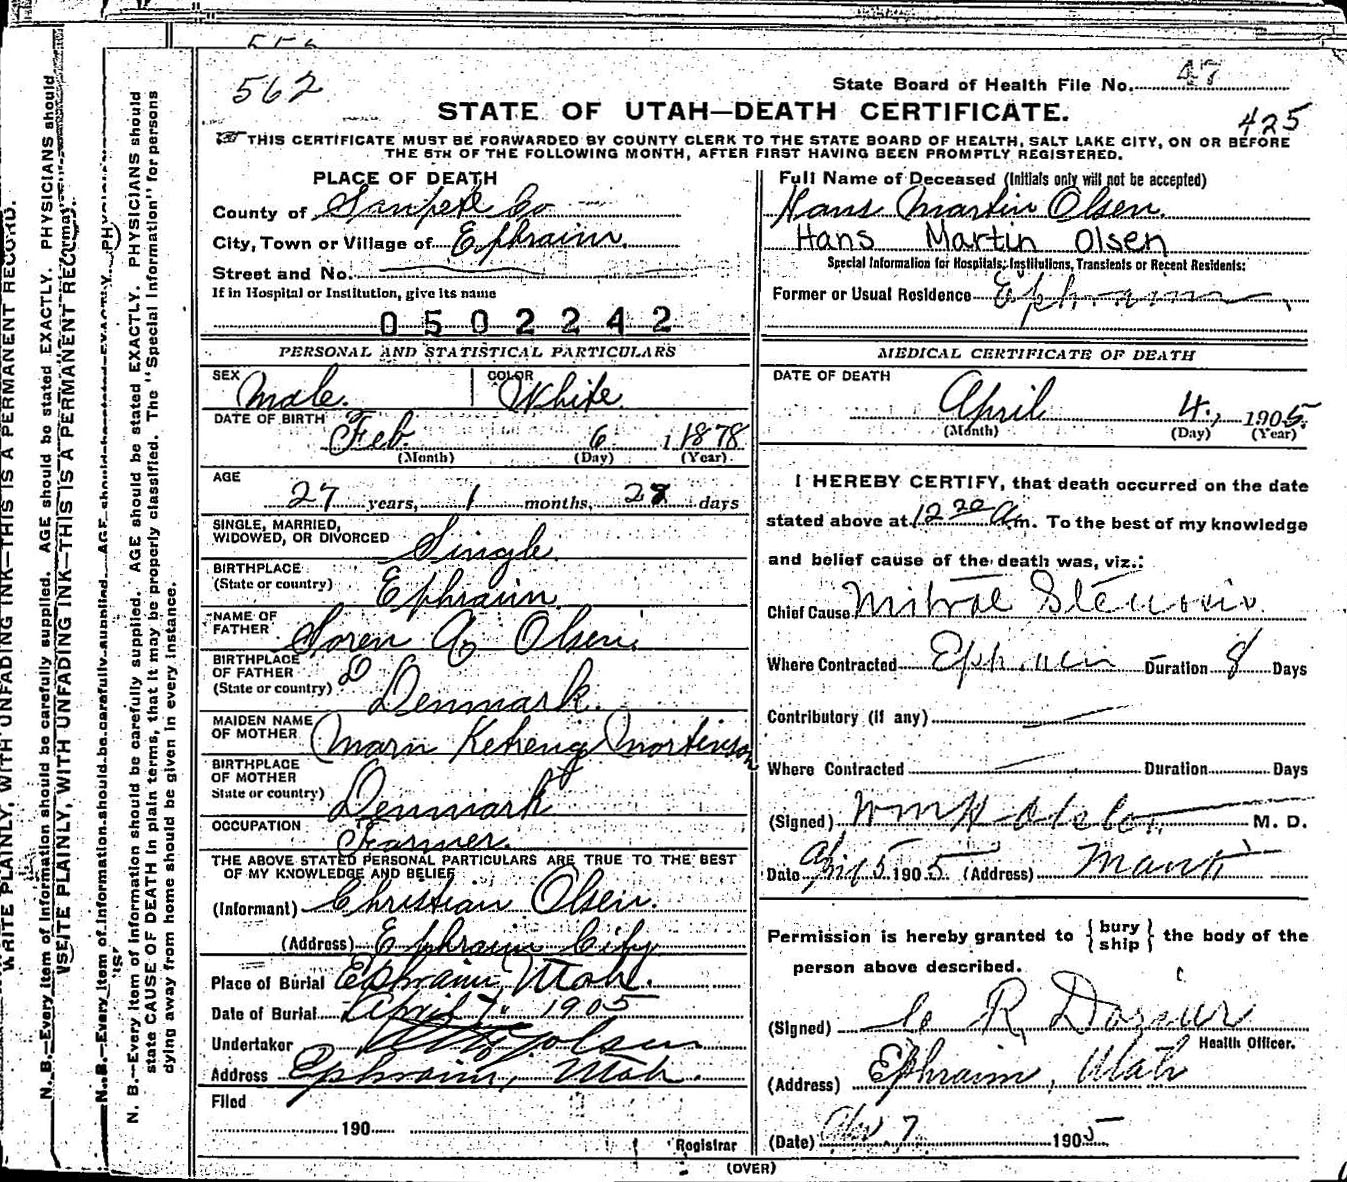 562
State Board of Health File No. 47
STATE OF UTAH—DEATH CERTIFICATE.
425
THIS CERTIFICATE MUST BE FORWARDED BY COUNTY CLERK TO THE STATE BOARD OF HEALTH, SALT LAKE CITY, ON OR BEFORE
THE 5TH OF THE FOLLOWING MONTH, AFTER FIRST HAVING BEEN PROMPTLY REGISTERED.
PLACE OF DEATH
County of Sanpete Co
City, Town or Village of Ephraim.
Street and No.
If in Hospital or Institution, give its name
0502242
Full Name of Deceased (Initials only will not be accepted)
Hans Martin Olsen.
Hans Martin Olsen
Special Information for Hospitals, Institutions, Transients or Recent Residents:
Former or Usual Residence Ephraim
PERSONAL AND STATISTICAL PARTICULARS
SEX Male.
COLOR White.
DATE OF BIRTH Feb. 6 1 1878
(Month) (Day) (Year)
AGE
27 years, 1 months, 28 days
SINGLE, MARRIED,
WIDOWED, OR DIVORCED Single
BIRTHPLACE
(State or country) Ephraim
NAME OF
FATHER Soren Olsen
BIRTHPLACE
OF FATHER
(State or country) Denmark.
MAIDEN NAME
OF MOTHER Marn
BIRTHPLACE
OF MOTHER
State or country) Denmark
OCCUPATION Farmer.
THE ABOVE STATED PERSONAL PARTICULARS ARE TRUE TO THE BEST
OF MY KNOWLEDGE AND BELIEF
(Informant) Christian Olsen.
(Address) Ephraim City
Place of Burial Ephraim, Utah.
Date of Burial April 7" 1905
Undertaker Olsen
Address Ephraim, Utah.
Filed
190
Registrar
MEDICAL CERTIFICATE OF DEATH
DATE OF DEATH
April 4, 1905.
(Month) (Day) (Year)
I HEREBY CERTIFY, that death occurred on the date
stated above at 12 20 Am. To the best of my knowledge
and belief cause of the death was, viz.:
Chief Cause Mitral Stenosis
Where Contracted Ephraim Duration 8 Days
Contributory (if any)
Where Contracted Duration Days
(Signed) Wm H M. D.
Date April 5 1905 (Address) Manti
Permission is hereby granted to { bury ship } the body of the
person above described.
(Signed) R Dorius
Health Officer.
(Address) Ephraim, Utah
(Date) 7 1905
(OVER)
WRITE PLAINLY, WITH UNFADING INK—THIS IS A PERMANENT RECORD.
N. B.—Every item of information should be carefully supplied. AGE should be stated EXACTLY. PHYSICIANS should
WRITE PLAINLY, WITH UNFADING INK—THIS IS A PERMANENT RECORD.
N. B.—Every item of information should be carefully supplied. AGE should be stated EXACTLY.
N. B.—Every item of information should be carefully supplied. AGE should be stated EXACTLY. PHYSICIANS should
state CAUSE OF DEATH in plain terms, that it may be properly classified. The "Special Information" for persons
dying away from home should be given in every instance.